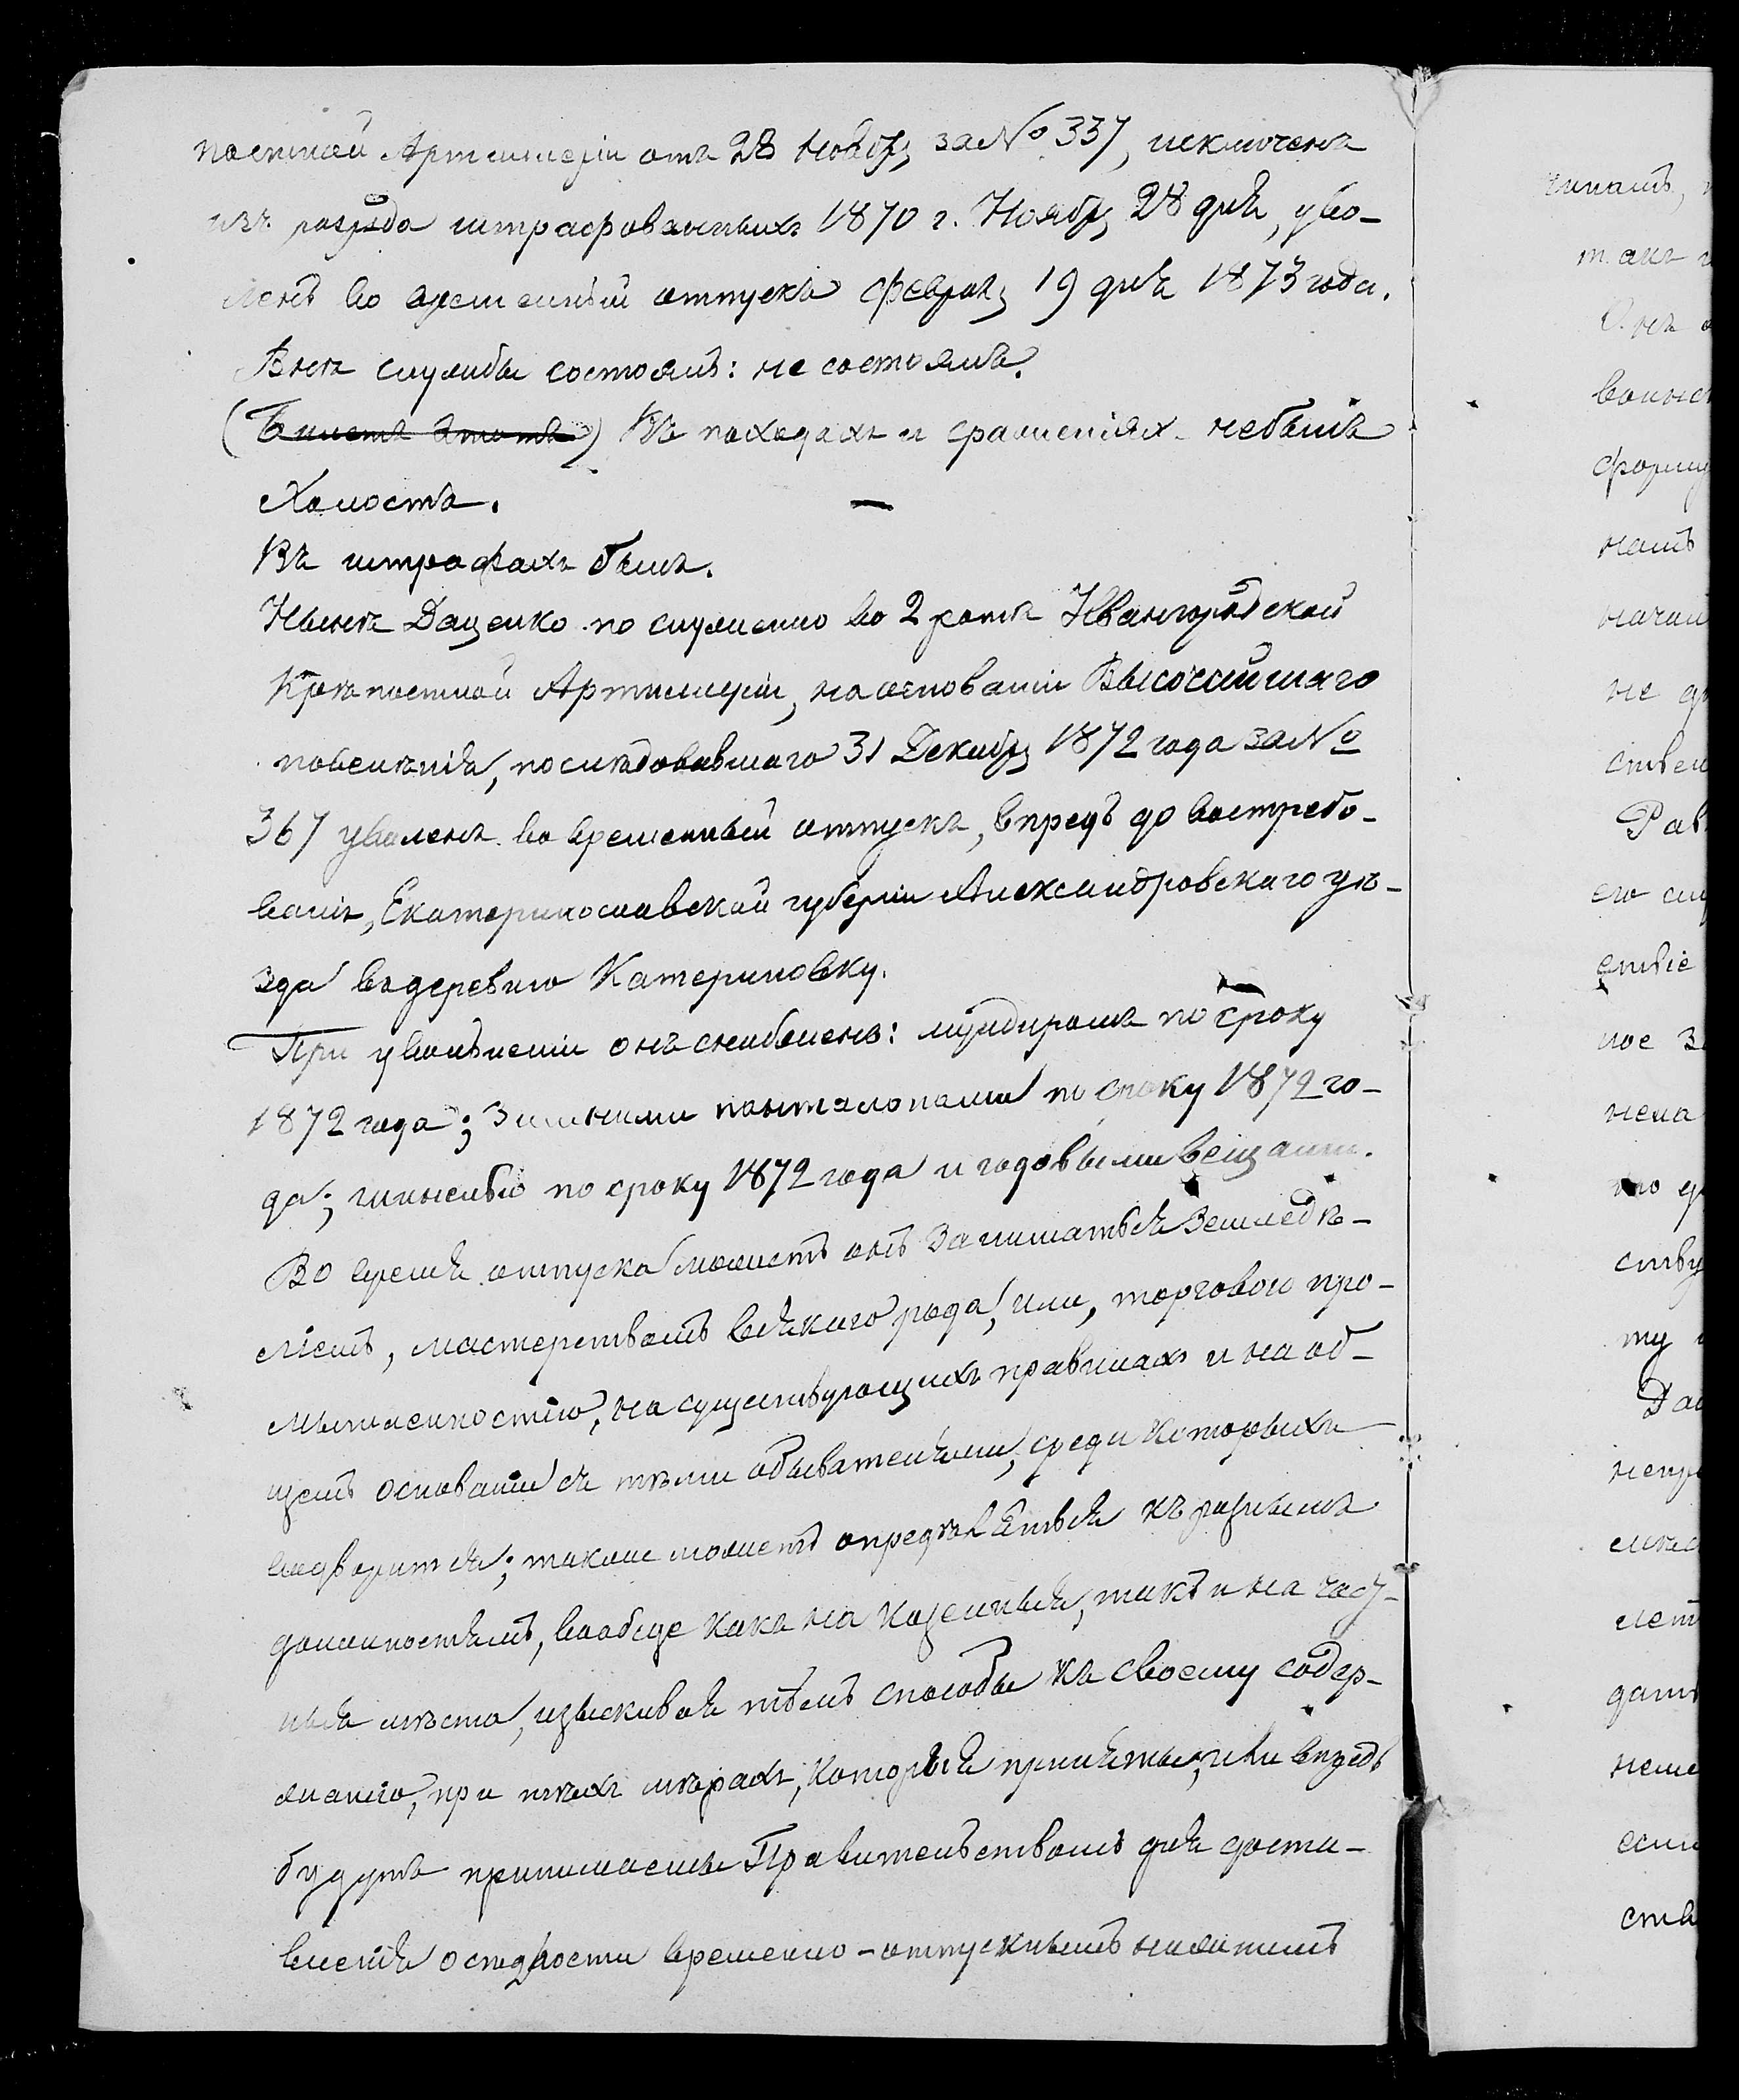 постной Артиллеріи отъ 28 Ноябр, за № 337, исключенъ
изъ разряда штрафованныхъ 1870 г. Ноябр, 28 дня, уво-
ленъ во временный отпускъ Феврал, 19 дня 1873 года.
Внѣ службы состоялъ: не состоялъ.
(Билетъ этотъ) Въ походахъ и сраженіяхъ не былъ
Холостъ. —
Въ штрафахъ былъ.
Нынѣ Даценко по служенію во 2 ротѣ Ивангородской
Крѣпостной Артиллеріи, на основаніи Высочайшаго
повелѣнія, послѣдовавшаго 31 Декабр, 1872 года за №
367 уволенъ во временный отпускъ, впредь до востребо-
ванія, Екатеринославской губерніи Александровскаго уѣ-
зда въ деревню Катериновку.
При увольненіи онъ снабженъ: мундиромъ по сроку
1872 года; зимними панталонами по сроку 1872 го-
да; шинелью по сроку 1872 года и годовыми вещами.
Во время отпуска можетъ онъ заниматься земледѣ-
ліемъ, мастерствомъ всякаго рода, или, торговою про-
мышленностію, на существующихъ правилахъ и на об-
щемъ основаніи съ тѣми обывателями, среди которыхъ
водворится; также можетъ опредѣляться къ разнымъ
должностямъ, вообще какъ на казенныя, такъ и на част-
ныя мѣста, изыскивая тѣмъ способы къ своему содер-
жанію, при тѣхъ мѣрахъ, которыя приняты, или впредь
будутъ принимаемы Правительствомъ для доста-
вленія осѣдлости временно-отпускнымъ нижнимъ
чинамъ,
такъ
Онъ